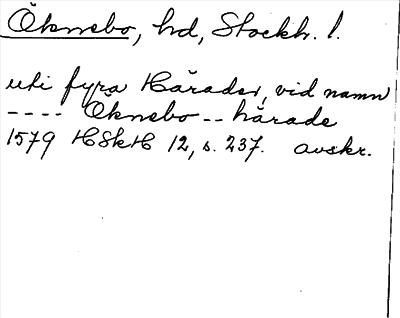 Öknebo, hd, Stockh. l.
uti fyra Härader, vid namn
---- Öknebo -- härade
1579 HSkH 12, s. 237. avskr.